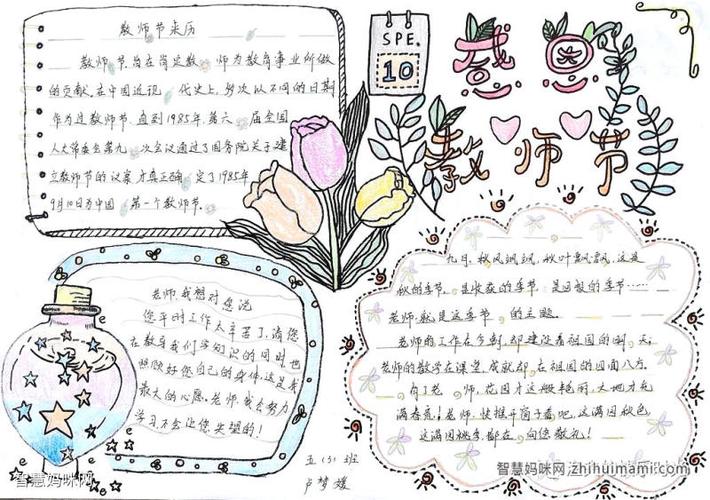 教师节来历
教师节,旨在肯定教 师为教育事业所做
的贡献。在中国近现 代史上,多次以不同的日期
作为过教师节。直到1985年,第六 届全国
人大常委会第九 次会议通过了国务院关于建
立教师节的议案,才真正确 定了1985年
9月10日为中国 第一个教师节。
SPE.
10
感恩
教师节
老师,我想对您说
您平时工作太辛苦了,请您
在教导我们学知识的同时也
照顾好您自己的身体,这是我
最大的心愿。老师,我会努力
学习不会让您失望的!
九月,秋风飒飒,秋叶飘飘,这是
秋的季节,是收获的季节,是回报的季节……
老师就是这季节 的主题。
老师的工作在今朝,却建设着祖国的明 天;
老师的教学在课堂,成就却 在祖国的四面八方。
有了老 师,花园才这般艳丽,大地才充
满春意!老师,快推开窗子看吧,这满园秋色
这满园桃李,都在 向您敬礼!
五(3)班
卢梦媛
智慧妈咪网
智慧妈咪网 zhihuimami.com